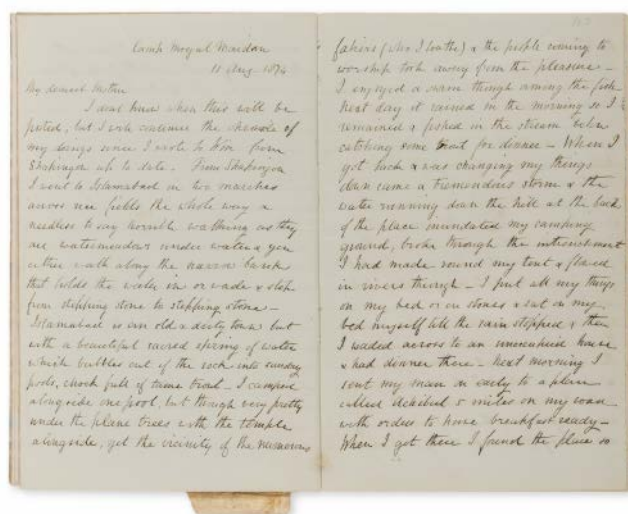 Camp Mogul Maidan
11 Aug. 1874
My dearest Mother
I dont know when this will be
posted, but I will continue the chronicle of
my doings since I wrote to from
up to date. From
I went to Islamabad in two marches
across rice fields the whole way &
needless to say horrible walking as they
are watermeadows under water & you
either walk along the narrow banks
that holds the water in or wade & slosh
from stepping stone to stepping stone -
Islamabad is an old & dirty town but
with a beautiful sacred spring of water
which bubbles out of the rock into sundry
pools, chock full of tame trout - I camped
alongside one pool, but though very pretty
under the plane trees with the temple
alongside, yet the vicinity of the numerous
fakirs (who I loathe) & the people coming to
worship took away from the pleasure -
I enjoyed a swim though among the fish
next day it rained in the morning so I
remained & fished in the stream below
catching some trout for dinner - When I
got back & was changing my things
down came a tremendous storm & the
water running down the hill at the back
of the place inundated my camping
ground, broke through the intrenchment
I had made round my tent & flowed
in rivers through - I put all my things
on my bed or on stones & sat on my
bed myself till the rain stopped & then
I waded across to an unoccupied house
& had dinner there - next morning I
sent my man on early to a place
called 5 miles on my road
with orders to have breakfast ready -
When I got there I found the place so